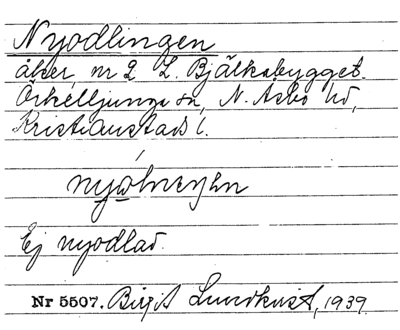 Nyodlingen
åker, nr 2 L. Bjälkabygget.
Örkelljunga sn, N. Åsbo hd,
Kristianstads l.
Ej nyodlad.
Nr 5507. Birgit Lundkvist, 1939.